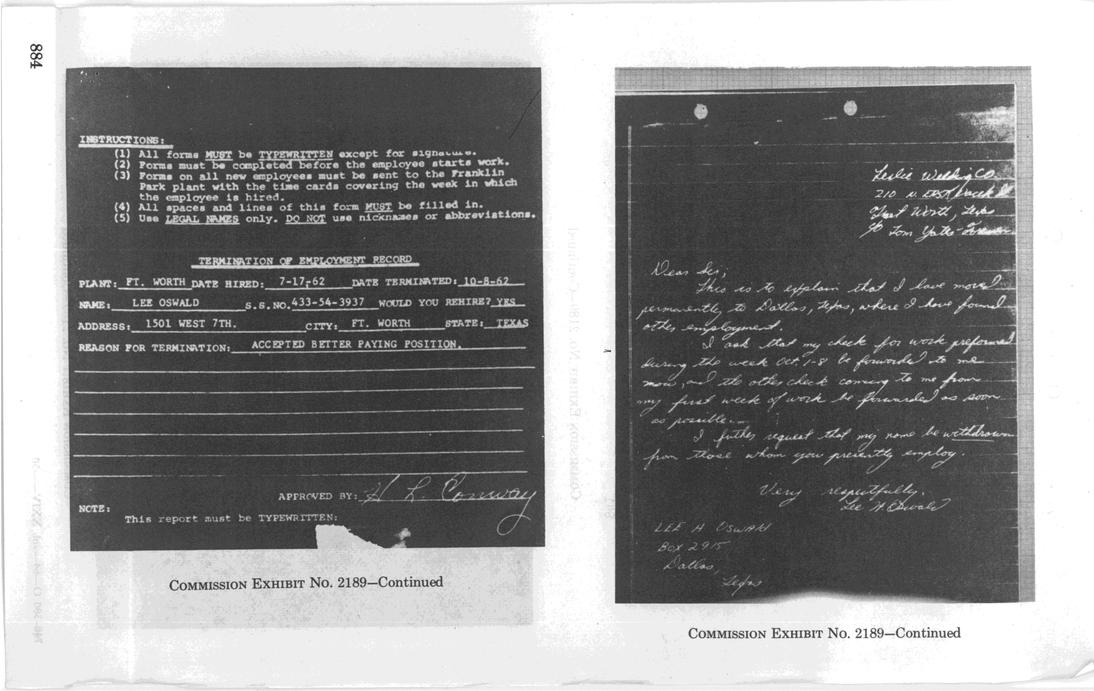 884
INSTRUCTIONS:
(1) All forms MUST be TYPEWRITTEN except for signature.
(2) Forms must be completed before the employee starts work.
(3) Forms on all new employees must be sent to the Franklin
Park plant with the time cards covering the week in which
the employee is hired.
(4) All spaces and lines of this form MUST be filled in.
(5) Use LEGAL NAMES only. DO NOT use nicknames or abbreviations.
TERMINATION OF EMPLOYMENT RECORD
PLANT: FT. WORTH DATE HIRED: 7-17-62 DATE TERMINATED: 10-8-62
NAME: LEE OSWALD S.S.NO. 433-54-3937 WOULD YOU REHIRE? YES
ADDRESS: 1501 WEST 7TH. CITY: FT. WORTH STATE: TEXAS
REASON FOR TERMINATION: ACCEPTED BETTER PAYING POSITION.
APPROVED BY: H. L. Conway
NOTE:
This report must be TYPEWRITTEN:
COMMISSION EXHIBIT No. 2189—Continued
Leslie Welding Co.
210 N.
Fort Worth, Texas
c/o Tom Yates-Foreman
Dear Sir,
This is to explain that I have moved
permanently to Dallas, Texas, where I have found
other employment.
I ask that my check for work preformed
during the week Oct. 1-8 be forwarded to me
now, and the other check coming to me from
my first week of work be forwarded as soon
as possible.
I futher request that my name be withdrawn
from those whom you presently employ.
Very respectfully,
Lee H Oswald
LEE H OSWALD
Box 2915
Dallas,
Texas
COMMISSION EXHIBIT No. 2189—Continued